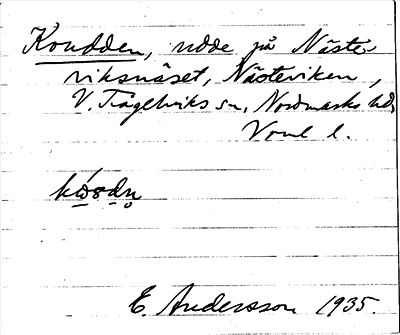 Koudden, udde på Näste-
viksnäset, Nästeviken,
V. Fågelviks sn, Nordmarks hd,
Verml l.
E. Andersson 1935.